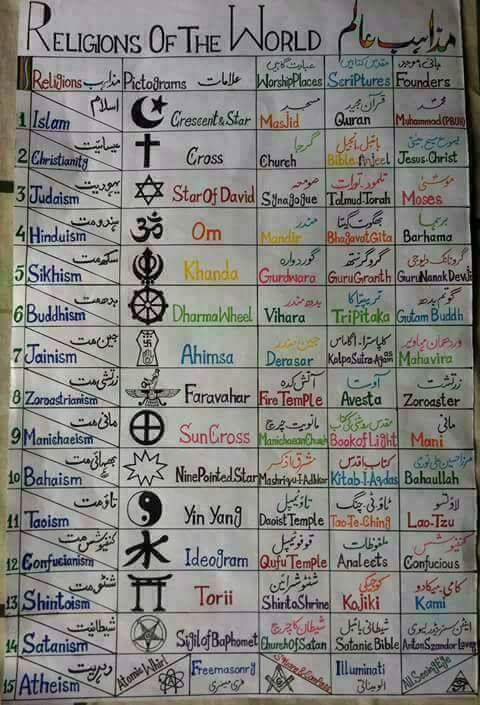 RELIGIONS OF THE WORLD مذاہب عالم
Religions مذاہب Pictograms علامات عبادت گاہیں WorshipPlaces مقدس کتابیں Scriptures بانی Founders
1 Islam اسلام Crescent & Star مسجد Masjid قرآن مجید Quran محمدؐ Muhammad (PBUH)
2 Christianity عیسائیت Cross گرجا Church بائبل انجیل Bible Anjeel یسوع مسیح Jesus Christ
3 Judaism یہودیت Star Of David صومعہ Synagogue تلمود تورات Talmud-Torah موسیٰ Moses
4 Hinduism ہندومت Om مندر Mandir بھگوت گیتا Bhagavat Gita برہما Barhama
5 Sikhism سکھ مت Khanda گوردوارہ Gurdwara گروگرنتھ Guru Granth گرونانک دیوجی Guru Nanak Dev Ji
6 Buddhism بدھ مت Dharma Wheel بدھ مندر Vihara تریپتاکا Tripitaka گوتم بدھ Gutam Buddh
7 Jainism جین مت Ahimsa جین مندر Derasar کلپاسترا۔اگاماس Kalpa Sutra-Agamas وردھمان مہاویر Mahavira
8 Zoroastrianism زرتشی مت Faravahar آتش کدہ Fire Temple آوستا Avesta زرتشت Zoroaster
9 Manichaeism مانی مت Sun Cross مانویت چرچ Manichaean Church مقدس روشنی کی کتاب Book of Light مانی Mani
10 Bahaism بہائی مت Nine Pointed Star مشرق اذکر Mashriqu-l-Adhkar کتاب اقدس Kitab-I-Aqdas مرزا حسین علی نوری Bahaullah
11 Taoism تاؤ مت Yin Yang تاؤ ٹیمپل Daoist Temple تاؤ ٹی چنگ Tao-Te-Ching لاؤتسو Lao-Tzu
12 Confucianism کنفیوشس مت Ideogram قوفو ٹیمپل Qufu Temple ملفوظات Analects کنفیوشس Confucious
13 Shintoism شنٹو مت Torii شنٹو شرائین Shinto Shrine کوجیکی Kojiki کامی۔میکادو Kami
14 Satanism شیطانیت Sigil of Baphomet شیطان کا چرچ Church Of Satan شیطانی بائبل Satanic Bible Anton Szandor Lavey
15 Atheism دہریت Atomic Whirl Freemasonry فری میسنری Square & Compass Illuminati الومیناتی All Seeing Eye